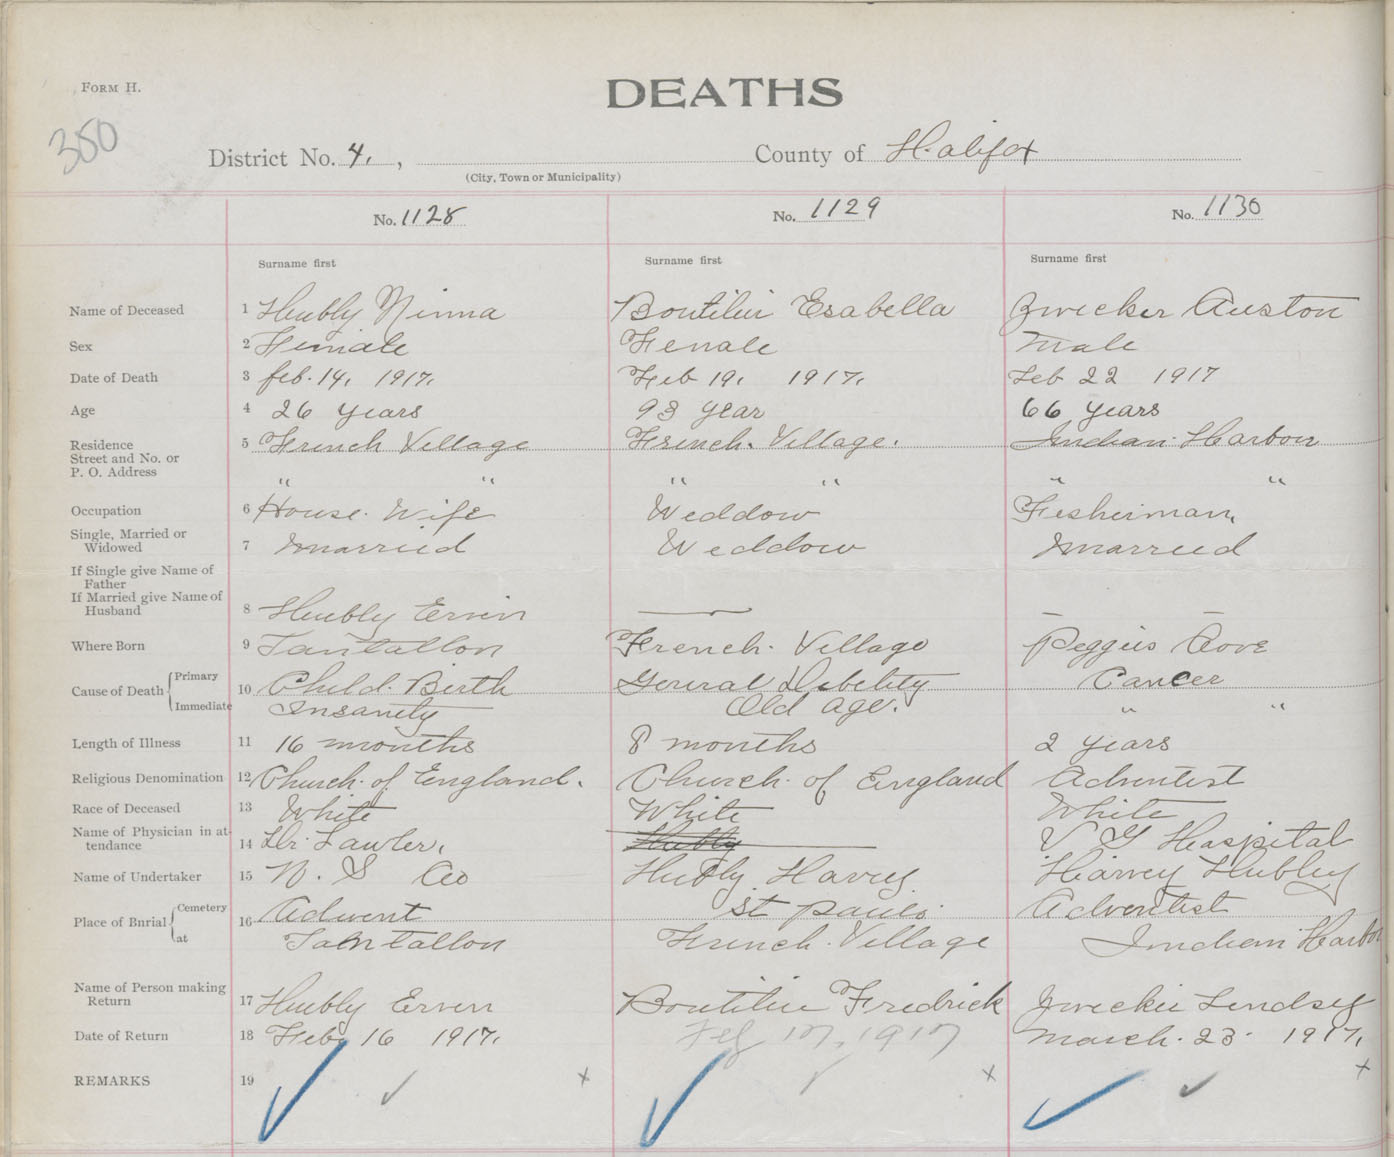 FORM H.
DEATHS
350
District No. 4. ,
County of Halifax
(City, Town or Municipality)
No. 1128 No. 1129 No. 1130
Surname first Surname first Surname first
Name of Deceased 1 Hubly Minna Boutilier Esabella Zwicker Auston
Sex 2 Female Female Male
Date of Death 3 feb. 14, 1917. Feb 19, 1917. Feb 22 1917
Age 4 26 years 93 year 66 years
Residence 5 French Village French. Village. Indian Harbor
Street and No. or
P. O. Address " " " " " "
Occupation 6 House. Wife Weddow Fesherman,
Single, Married or
Widowed 7 Married Weddow Married
If Single give Name of
Father
If Married give Name of
Husband 8 Hubly Ervin — — —
Where Born 9 Tantallon French. Village Peggies Cove
Cause of Death { Primary 10 Child. Birth General Debelity Cancer
Immediate Insanity Old age. " "
Length of Illness 11 16 months 8 months 2 years
Religious Denomination 12 Church. of England. Church. of England Adventist
Race of Deceased 13 White White White
Name of Physician in at-
tendance 14 Dr. Lawler, Hubly V G Haspital
Name of Undertaker 15 N. S Co Hubly Harvey. Harvey Hubley
Place of Burial { Cemetery 16 Advent St pauls Adventist
at Tantallon French. Village Indian Harbor
Name of Person making
Return 17 Hubly Erven Boutilier Fredrick Zwicker Lendsey
Date of Return 18 Feb 16 1917. Feb 17, 1917 March. 23. 1917.
REMARKS 19 x x x